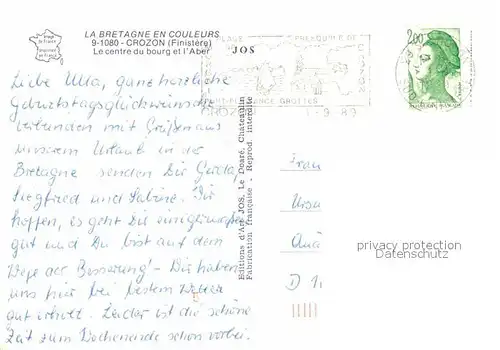 LA BRETAGNE EN COULEURS
9-1080 - CROZON (Finistère)
Le centre du bourg et l'Aber
JOS
PRESQU'ILE DE
CROZON
GROTTES
CROZON
1-9 89
2,00
Liebe Ulla, ganz herzliche
Geburtstagsglückwünsche
verbunden mit Grüßen aus
unserem Urlaub in der
Bretagne senden Dir Gerda,
Siegfried und Sabine. Wir
hoffen, es geht Dir einigermaßen
gut und Du bist auf dem
Wege der Besserung! - Wir haben
uns hier bei bestem Wetter
gut erholt. Leider ist die schöne
Zeit zum Wochenende schon vorbei.
Editions d'Art JOS, Le Doaré, Chateaulin
Fabrication française Reprod. interdite
Frau
Ursu
D 1
privacy protection
Datenschutz